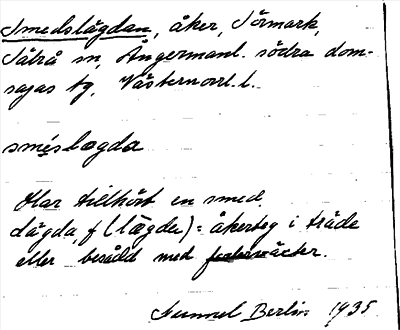 Smedslägdan, åker, Sörmark,
Sätrå sn, Ångermanl. södra dom-
sagas tg, Västernorrl. l.
sméslægda
Har tillhört en smed.
Lägda, f (lægda) = åkerteg i träde
eller besådd med foderväxter.
Gunnel Berlin 1935